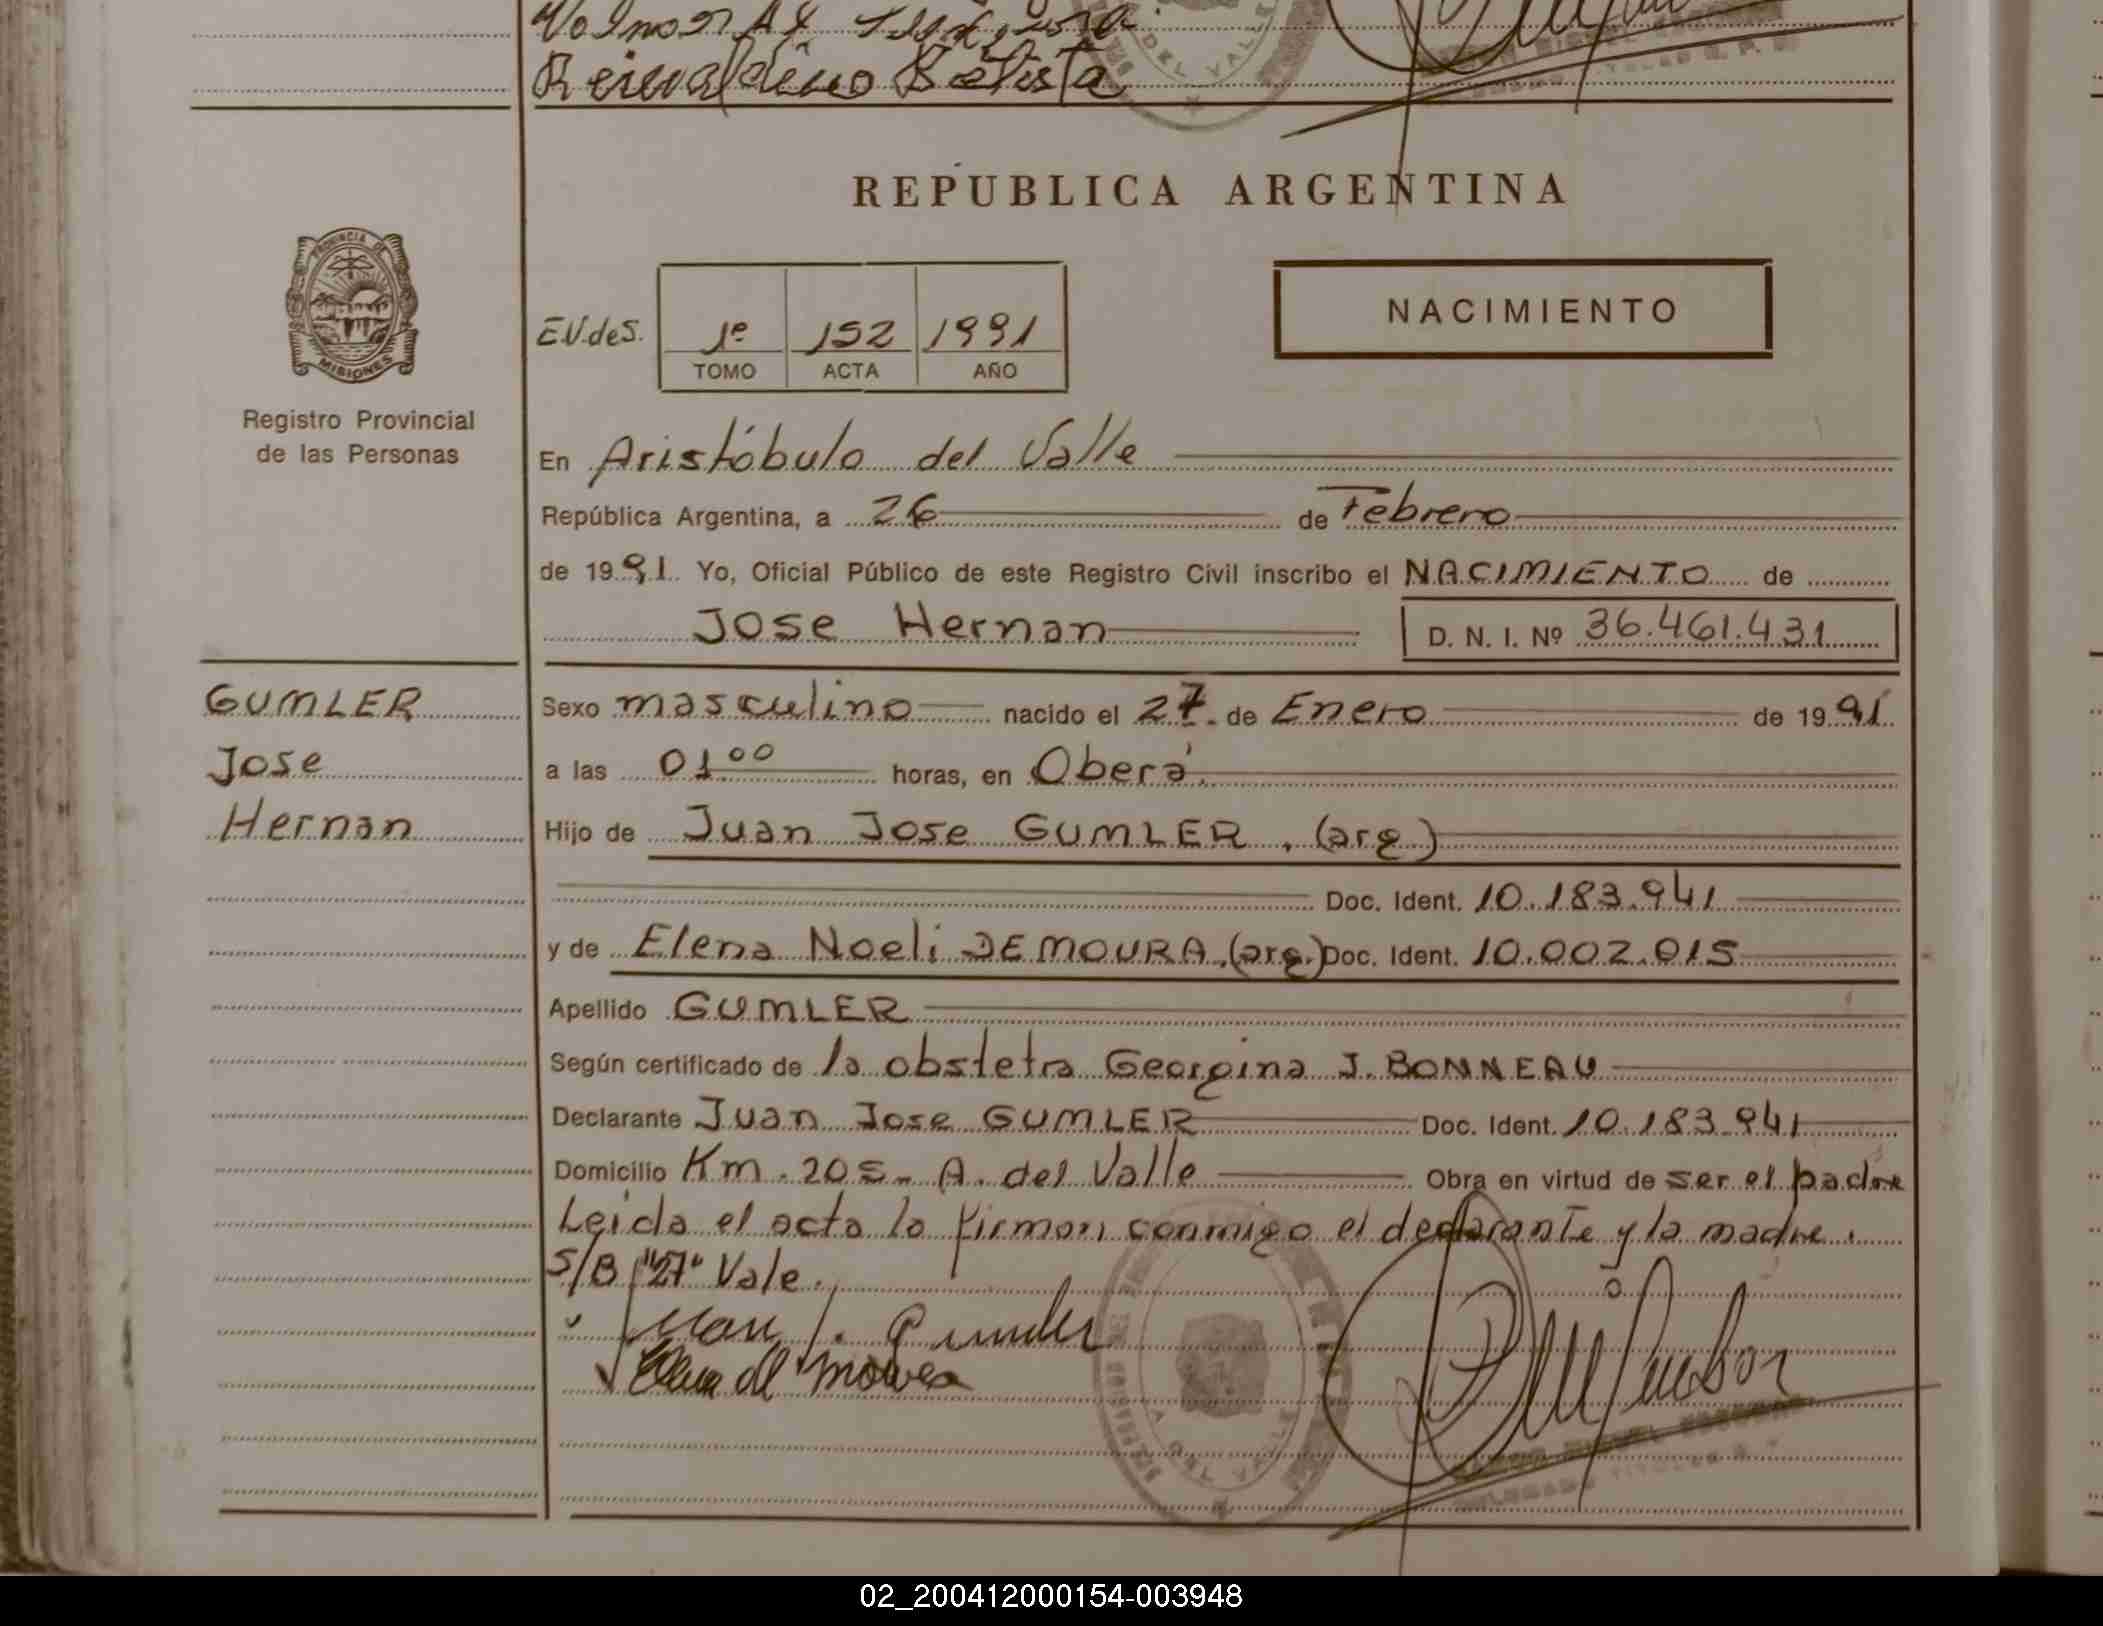 Reinaldino Batista
DEL VALLE
REPUBLICA ARGENTINA
PROVINCIA DE
MISIONES
Registro Provincial
de las Personas
NACIMIENTO
E.V.deS. 1º 152 1991
TOMO ACTA AÑO
En Aristóbulo del Valle
República Argentina, a 26 de Febrero
de 1991 Yo, Oficial Público de este Registro Civil inscribo el NACIMIENTO de
Jose Hernan D. N. I. Nº 36.461.431
GUMLER
Jose
Hernan
Sexo masculino nacido el 27 de Enero de 1991
a las 01 00 horas, en Oberá.
Hijo de Juan Jose GUMLER, (arg)
Doc. Ident. 10.183.941
y de Elena Noeli DE MOURA, (arg.) Doc. Ident. 10.002.015
Apellido GUMLER
Según certificado de la obstetra Georgina J. BONNEAU
Declarante Juan Jose GUMLER Doc. Ident. 10.183.941
Domicilio Km. 205- A. del Valle Obra en virtud de ser el padre
Leida el acta la firman conmigo el declarante y la madre.
S/B "27" Vale.
Juan J. Gumler
Elena de Moura
DEL VALLE
02_200412000154-003948